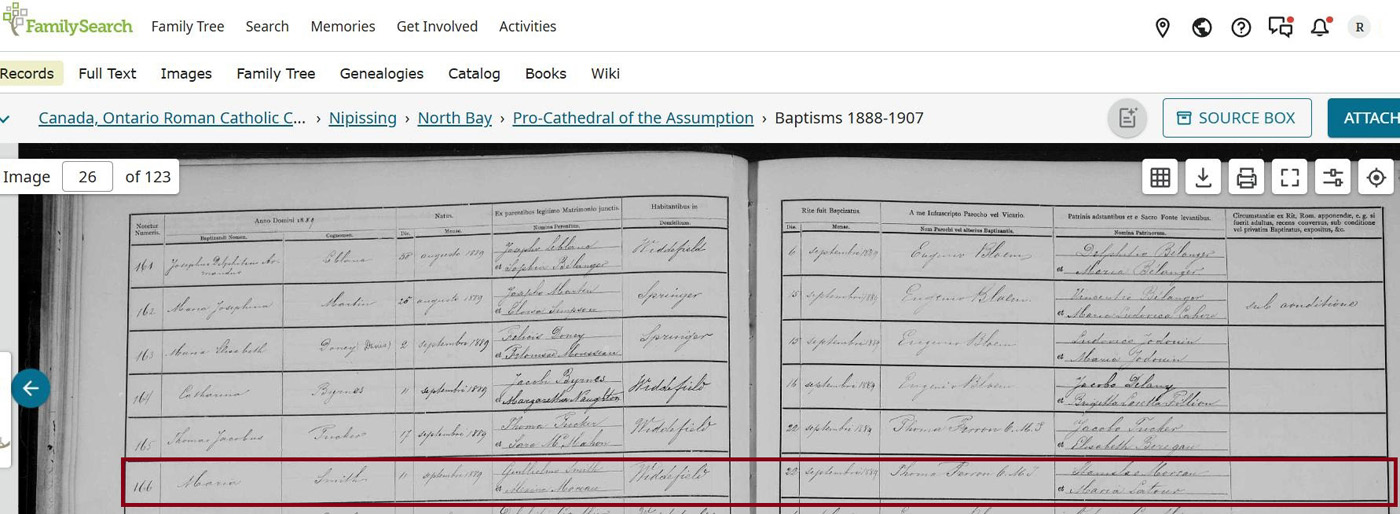 FamilySearch
Family Tree
Search
Memories
Get Involved
Activities
R
Records
Full Text
Images
Family Tree
Genealogies
Catalog
Books
Wiki
Canada, Ontario Roman Catholic C... › Nipissing › North Bay › Pro-Cathedral of the Assumption › Baptisms 1888-1907
SOURCE BOX
ATTACH
Image 26 of 123
Numeris.
Anno Domini 1889
Baptizandi Nomen.
Cognomen.
Natus.
Die.
Mense.
Ex parentibus legitimo Matrimonio junctis.
Nomina Parentum.
Habitantibus in
Domicilium.
Rite fuit Baptizatus.
Die.
Mense.
A me Infrascripto Parocho vel Vicario.
Nom Parochi vel alterius Baptizantis.
Patrinis adstantibus et e Sacro Fonte levantibus.
Nomina Patrinorum.
Circumstantiæ ex Rit. Rom. apponendæ, e. g. si
fuerit adultus, recens conversus, sub conditione
vel privatim Baptizatus, expositus, &c.
161
Leblanc
28 augusti 1889
Josepho Leblanc
et Sophia Bélanger
Widdifield
6 septembris 1889
Eugenio Bloem
Bélanger
et Maria Bélanger
162
Maria Josephina
Martin
25 augusti 1889
Josepho Martin
et Simpson
Springer
15 septembris 1889
Eugenio Bloem
Vincentio Bélanger
et Maria Ludovica
sub conditione
163
Maria Elisabeth
2 septembris 1889
et Philomena Mousseau
Springer
15 septembris 1889
Eugenio Bloem
Ludovico Jodouin
et Maria Jodouin
164
Catharina
Byrnes
11 septembris 1889
Jacobo Byrnes
et Margaretha Naughton
Widdifield
16 septembris 1889
Eugenio Bloem
Jacobo Delany
et Brigitta Fillion
165
Thomas Jacobus
Tucker
17 septembris 1889
Thoma Tucker
et Sara McMahon
Widdifield
22 septembris 1889
Thoma Perron
Jacobo Tucker
et Elisabeth
166
Maria
Smith
11 septembris 1889
Gulielmo Smith
et Moreau
Widdifield
22 septembris 1889
Thoma Perron
Stanislao
et Maria Latour